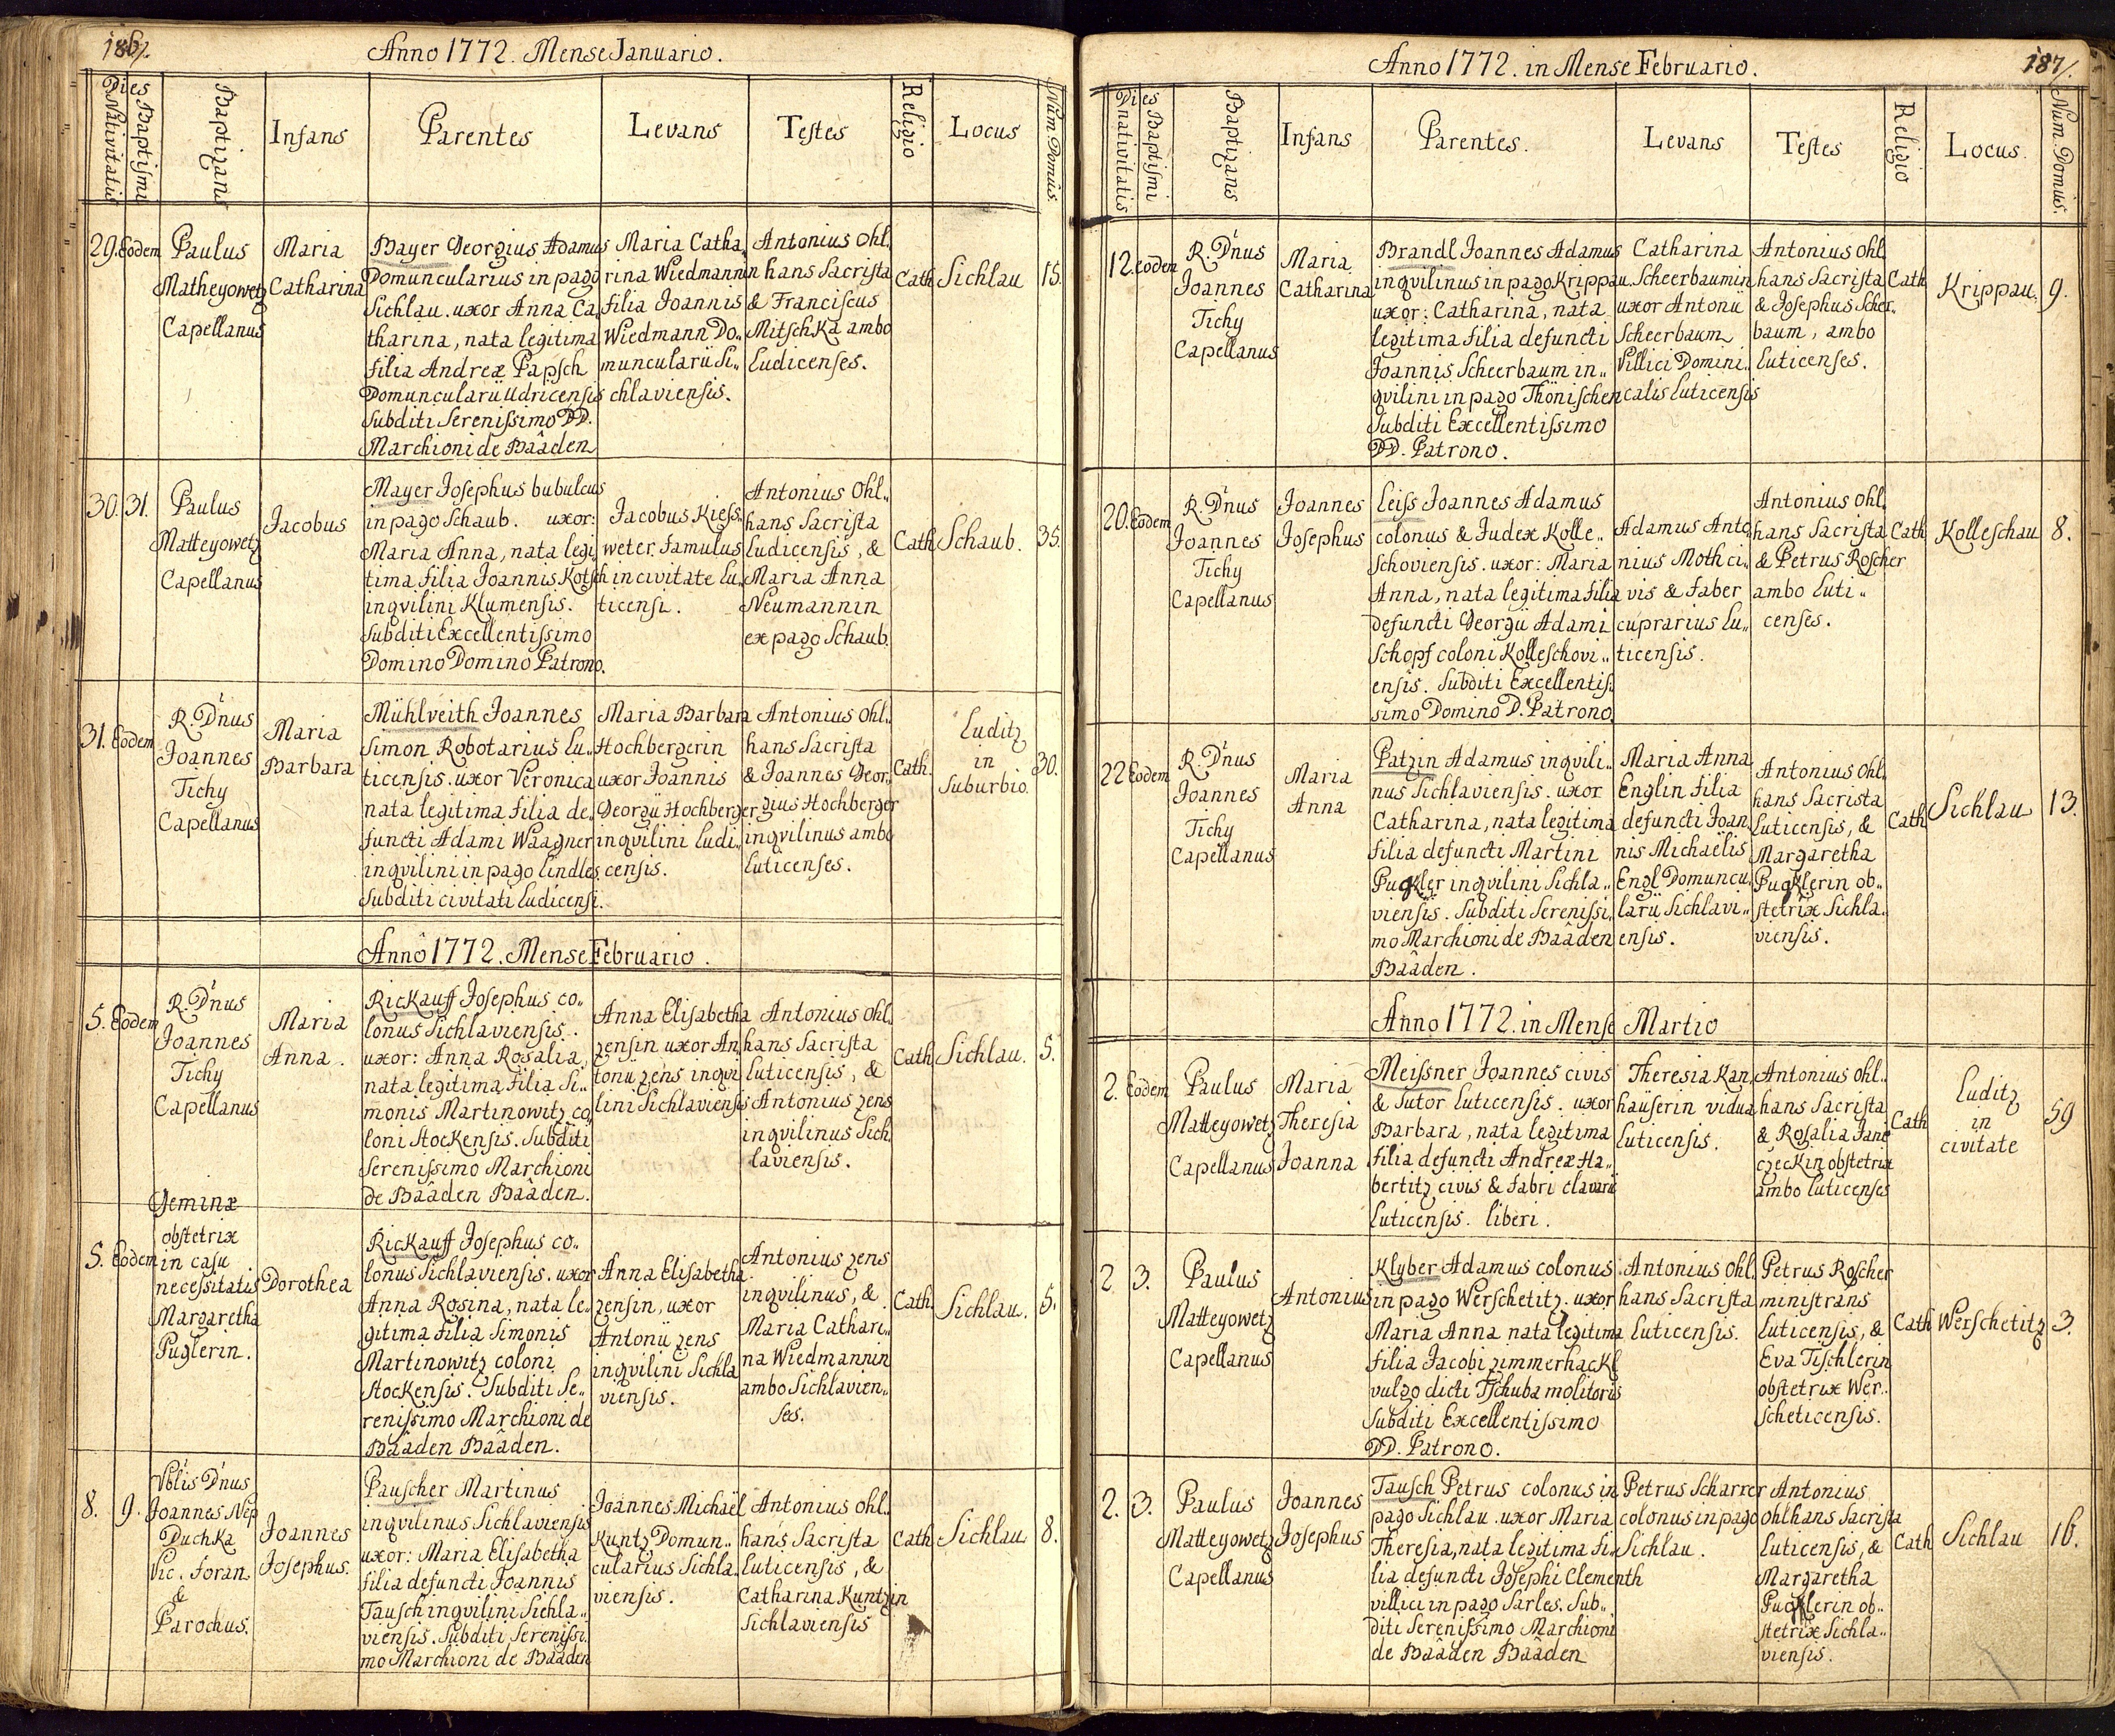 186/.
Anno 1772. Mense Januario.
Dies
Nativitatis
Baptismi
Baptizans
Infans
Parentes
Levans
Testes
Religio
Locus
Num: Domus.
29. Eodem
Paulus
Matheyowetz
Capellanus
Maria
Catharina
Bayer Georgius Adamus
Domuncularius in pago
Sichlau. uxor Anna Ca„
tharina, nata legitima
filia Andreæ Papsch
Domuncularii Udricensis
Subditi Serenissimo DD.
Marchioni de Baâden
Maria Catha„
rina Wiedmannin
filia Joannis
Wiedmann Do„
muncularii Si„
chlaviensis.
Antonius Ohl„
hans Sacrista
& Franciscus
Mitschka ambo
Ludicenses.
Cath
Sichlau
15.
30. 31.
Paulus
Matteyowetz
Capellanus
Jacobus
Mayer Josephus bubulcus
in pago Schaub. uxor:
Maria Anna, nata legi„
tima filia Joannis Kotsch
inqvilini Klumensis.
Subditi Excellentissimo
Domino Domino Patrono.
Jacobus Kiess„
weter famulus
in civitate Lu„
ticensi.
Antonius Ohl„
hans Sacrista
Ludicensis, &
Maria Anna
Neumannin
ex pago Schaub.
Cath
Schaub.
35.
31. Eodem
R. D'nus
Joannes
Tichy
Capellanus
Maria
Barbara
Mühlveith Joannes
Simon Robotarius Lu„
ticensis. uxor Veronica
nata legitima filia de„
functi Adami Waagner
inqvilini in pago Lindles.
Subditi civitati Ludicensi.
Maria Barbara
Hochbergerin
uxor Joannis
Georgii Hochberger
inqvilini Ludi„
censis.
Antonius Ohl„
hans Sacrista
& Joannes Geor„
gius Hochberger
inqvilinus ambo
Luticenses.
Cath.
Luditz
in
Suburbio.
30.
Anno 1772. Mense Februario.
5. Eodem
R. D'nus
Joannes
Tichy
Capellanus
Maria
Anna.
Rickauff Josephus co„
lonus Sichlaviensis.
uxor: Anna Rosalia,
nata legitima filia Si„
monis Martinowitz co„
loni Stockensis. Subditi
Serenissimo Marchioni
de Baâden Baâden.
Anna Elisabetha
Zensin uxor An„
tonii Zens inqvi„
lini Sichlaviensis
Antonius Ohl„
hans Sacrista
Luticensis, &
Antonius Zens
inqvilinus Sich„
laviensis.
Cath
Sichlau.
5.
Geminæ
5. Eodem
obstetrix
in casu
necessitatis
Margaretha
Puglerin.
Dorothea
Rickauff Josephus co„
lonus Sichlaviensis. uxor
Anna Rosina, nata le„
gitima filia Simonis
Martinowitz coloni
Stockensis. Subditi Se„
renissimo Marchioni de
Baâden Baâden.
Anna Elisabetha
Zensin, uxor
Antonii Zens
inqvilini Sichla
viensis.
Antonius Zens
inqvilinus, &
Maria Cathari„
na Wiedmannin
ambo Sichlavien„
ses.
Cath.
Sichlau.
5.
8. 9.
Vblis D'nus
Joannes Nep
Duchka
Vic. Foran.
&
Parochus.
Joannes
Josephus.
Pauscher Martinus
inqvilinus Sichlaviensis
uxor: Maria Elisabetha
filia defuncti Joannis
Tausch inqvilini Sichla„
viensis. Subditi Serenissi„
mo Marchioni de Baâden
Joannes Michaël
Kuntz Domun„
cularius Sichla„
viensis.
Antonius Ohl„
hans Sacrista
Luticensis, &
Catharina Kuntzin
Sichlaviensis
Cath
Sichlau
8.
187/.
Anno 1772. in Mense Februario.
Dies
nativitatis
Baptismi
Baptizans
Infans
Parentes.
Levans
Testes
Religio
Locus.
Num. Domus.
12. Eodem
R. D'nus
Joannes
Tichy
Capellanus
Maria
Catharina
Brandl Joannes Adamus
inqvilinus in pago Krippau.
uxor: Catharina, nata
legitima filia defuncti
Joannis Scheerbaum in„
qvilini in pago Thönischen
Subditi Excellentissimo
DD. Patrono.
Catharina
Scheerbaumin
uxor Antonii
Scheerbaum
Villici Domini„
calis Luticensis
Antonius Ohl„
hans Sacrista
& Josephus Scher„
baum, ambo
Luticenses.
Cath
Krippau.
9.
20. Eodem
R. D'nus
Joannes
Tichy
Capellanus
Joannes
Josephus
Leiss Joannes Adamus
colonus & Judex Kolle„
schoviensis. uxor: Maria
Anna, nata legitima filia
defuncti Georgii Adami
Schopf coloni Kolleschovi„
ensis. Subditi Excellentis„
simo Domino D. Patrono.
Adamus Anto„
nius Moth ci„
vis & Faber
cuprarius Lu„
ticensis.
Antonius Ohl„
hans Sacrista
& Petrus Roscher
ambo Luti„
censes.
Cath
Kolleschau
8.
22 Eodem
R. D'nus
Joannes
Tichy
Capellanus
Maria
Anna
Patzin Adamus inqvili„
nus Sichlaviensis. uxor
Catharina, nata legitima
filia defuncti Martini
Pugkler inqvilini Sichla„
viensis. Subditi Serenissi„
mo Marchioni de Baâden
Baâden.
Maria Anna
Englin filia
defuncti Joan„
nis Michaëlis
Engl Domuncu„
larii Sichlavi„
ensis.
Antonius Ohl„
hans Sacrista
Luticensis, &
Margaretha
Pugklerin ob„
stetrix Sichla„
viensis.
Cath
Sichlau
13.
Anno 1772. in Mense Martio
2. Eodem
Paulus
Matteyowetz
Capellanus
Maria
Theresia
Joanna
Meissner Joannes civis
& Sutor Luticensis. uxor
Barbara, nata legitima
filia defuncti Andreæ Ha„
bertitz civis & fabri clavarii
Luticensis. liberi.
Theresia Kan„
häuserin vidua
Luticensis.
Antonius Ohl„
hans Sacrista
& Rosalia Jane
czeckin obstetrix
ambo Luticenses
Cath
Luditz
in
civitate
59
2 3.
Paulus
Matteyowetz
Capellanus
Antonius
Klyber Adamus colonus
in pago Werschetitz. uxor
Maria Anna nata legitima
filia Jacobi Zimmerhackl
vulgo dicti Tschuba molitoris
Subditi Excellentissimo
DD. Patrono.
Antonius Ohl„
hans Sacrista
Luticensis.
Petrus Roscher
ministrans
Luticensis, &
Eva Tischlerin
obstetrix Wer„
scheticensis.
Cath
Werschetitz
3.
2. 3.
Paulus
Matteyowetz
Capellanus
Joannes
Josephus
Tausch Petrus colonus in
pago Sichlau. uxor Maria
Theresia, nata legitima fi„
lia defuncti Josephi Clementh
villici in pago Sarles. Sub„
diti Serenissimo Marchioni
de Baâden Baâden
Petrus Scharrer
colonus in pago
Sichlau.
Antonius
Ohlhans Sacrista
Luticensis, &
Margaretha
Pucklerin ob„
stetrix Sichla„
viensis.
Cath
Sichlau
16.